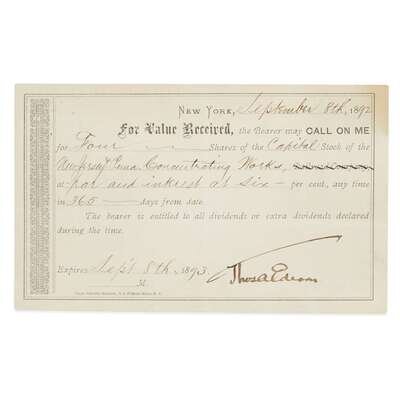 NEW YORK, September 8th, 1892
For Value Received, the Bearer may CALL ON ME
for Four Shares of the Capital Stock of the
New Jersey & Penna Concentrating Works,
at par and interest at six per cent, any time
in 365 days from date.
The bearer is entitled to all dividends or extra dividends declared
during the time.
Expires Sept 8th, 1893
Thos A Edison